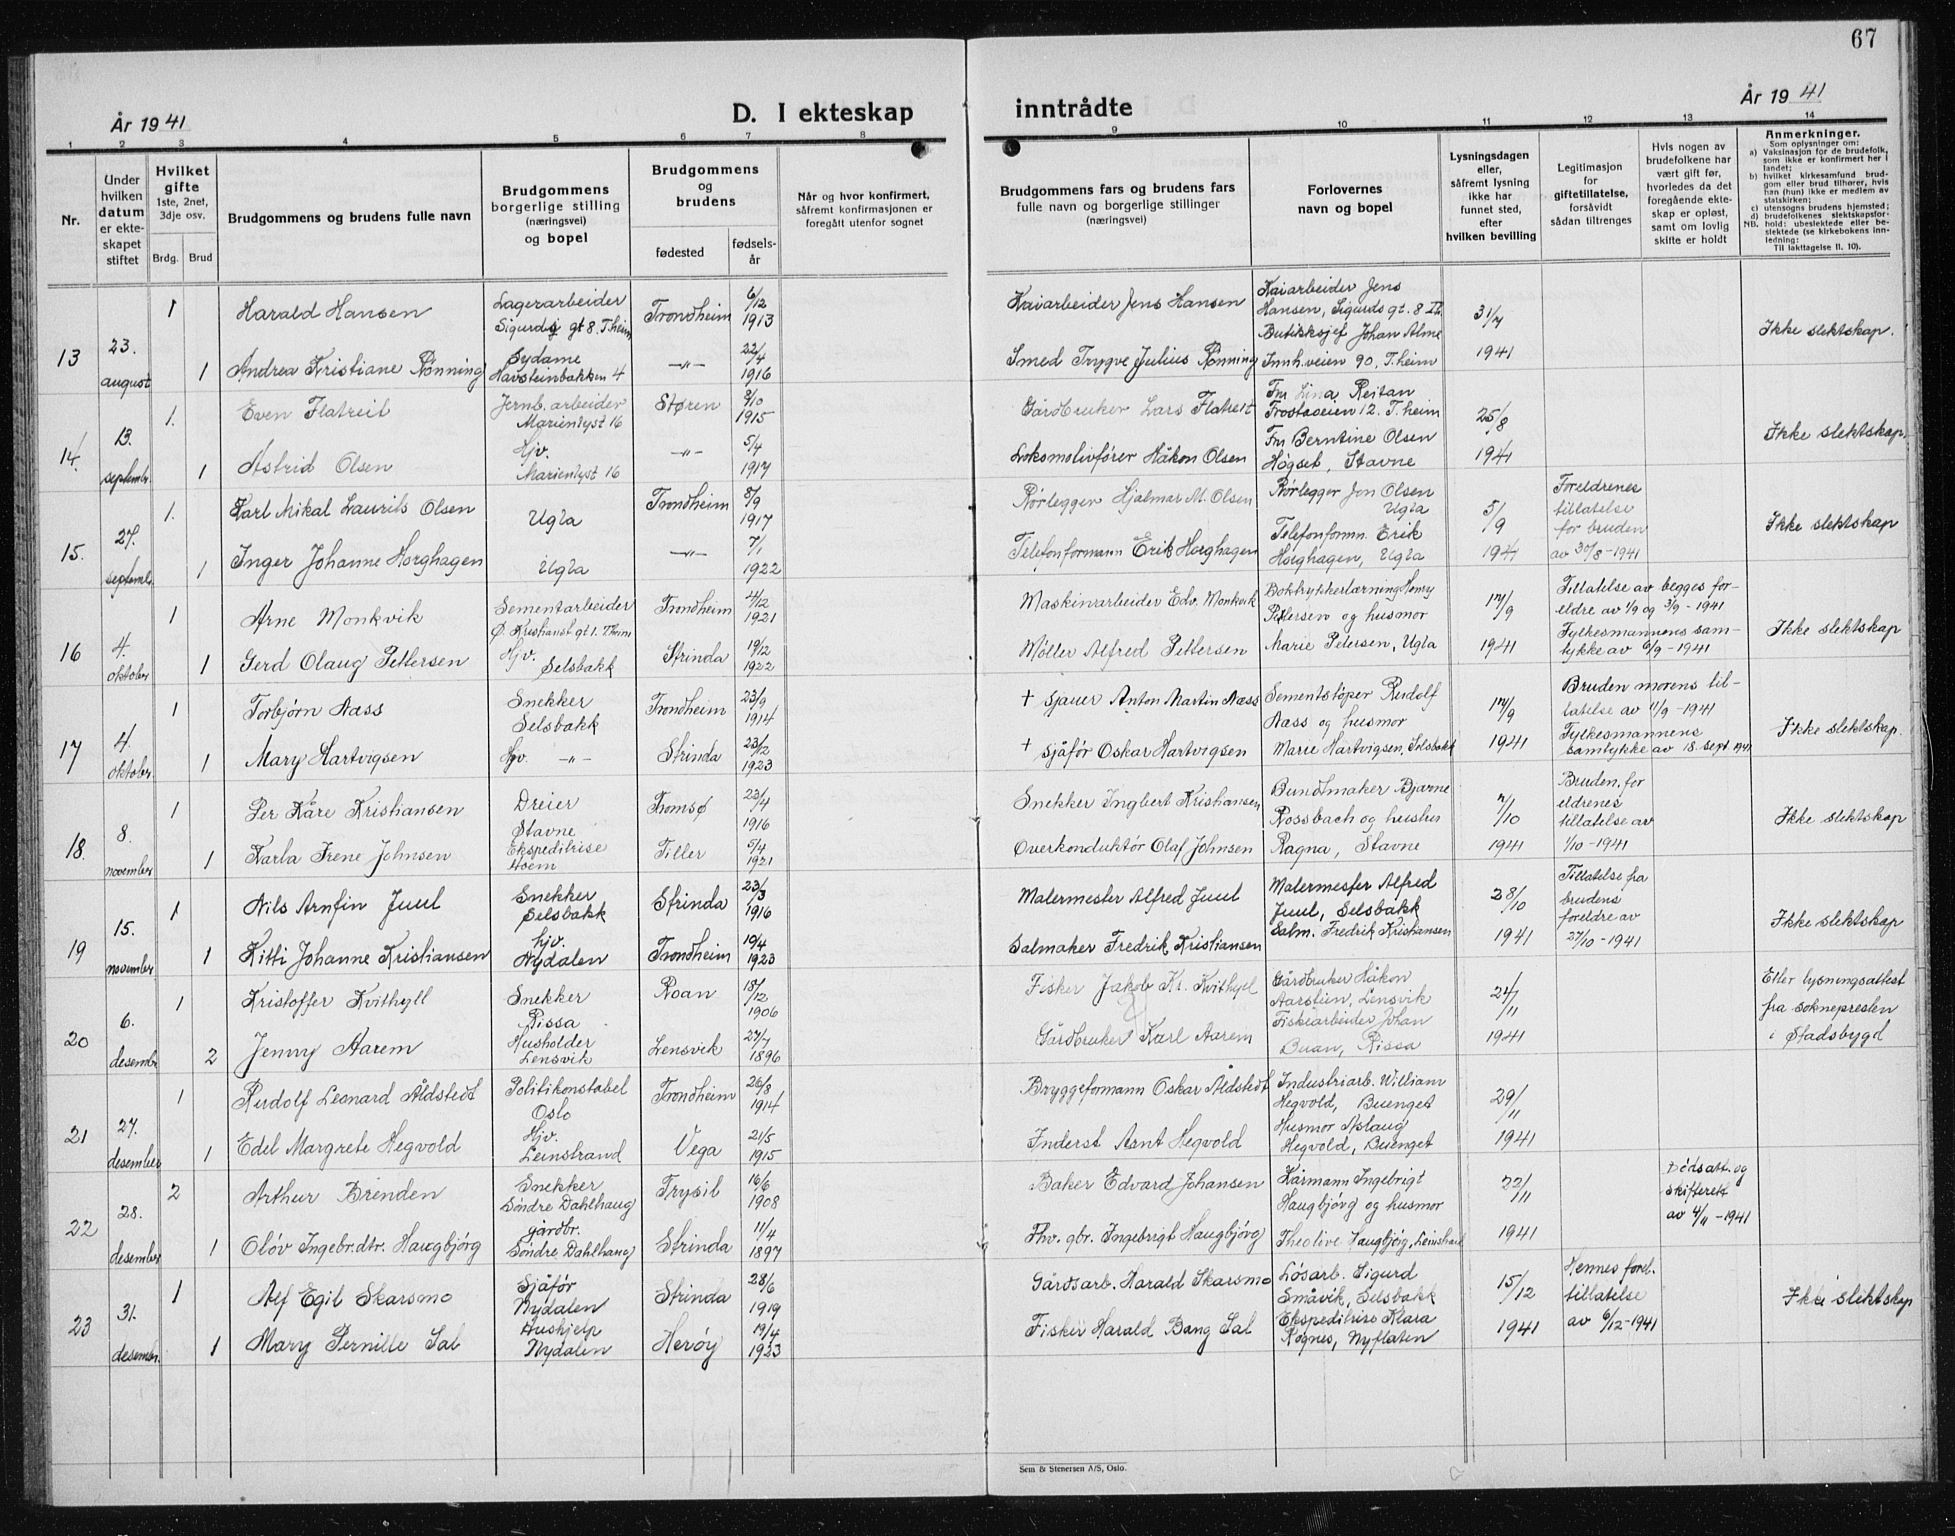 67
År 1941
D. I ekteskap
inntrådte
År 1941
1 2 3 4 5 6 7 8 9 10 11 12 13 14
Nr.
Under hvilken datum er ekteskapet stiftet
Hvilket gifte 1ste, 2net, 3dje osv.
Brdg. Brud
Brudgommens og brudens fulle navn
Brudgommens borgerlige stilling (næringsvei) og bopel
Brudgommens og brudens
fødested
fødselsår
Når og hvor konfirmert, såfremt konfirmasjonen er foregått utenfor sognet
Brudgommens fars og brudens fars fulle navn og borgerlige stillinger (næringsvei)
Forlovernes navn og bopel
Lysningsdagen eller, såfremt lysning ikke har funnet sted, efter hvilken bevilling
Legitimasjon for giftetillatelse, forsåvidt sådan tiltrenges
Hvis nogen av brudefolkene har vært gift før, hvorledes da det foregående ekteskap er opløst, samt om lovlig skifte er holdt
Anmerkninger.
Som oplysninger om:
a) Vaksinasjon for de brudefolk, som ikke er konfirmert her i landet;
b) hvilket kirkesamfund brudgom eller brud tilhører, hvis han (hun) ikke er medlem av statskirken;
c) utensogns brudens hjemsted;
d) brudefolkenes slektskapsforhold: ubeslektede eller beslektede (se kirkebokens innledning:
NB. Til iakttagelse II. 10).
13 23. august
1 Harald Hansen Lagerarbeider Sigurds gt 8. T.heim Trondheim 6/12 1913 Kaiarbeider Jens Hansen Kaiarbeider Jens Hansen, Sigurds gt. 8 31/7 1941 Ikke slektskap.
1 Andrea Kristiane Rønning Sydame Havsteinbakken 4 —"— 22/4 1916 Smed Trygve Julius Rønning Butikksjef Johan Alme Innh.veien 90. T.heim
14 13. septembr.
1. Even Flatreit Jernb. arbeider Marienlyst 16 Støren 1915 Gårdbruker Lars Flatreit Frk Lina Reitan 12. T.heim 25/8 1941 Ikke slektskap.
1 Astrid Olsen Hjv. Marienlyst 16 —"— 5/4 1917 Lokomotivfører Håkon Olsen Berntine Olsen Høgset, Stavne
15. 27. septemb.
1. Karl Mikal Laurits Olsen Ugla Trondheim 8/9 1917 Rørlegger Hjalmar M. Olsen Rørlegger Jon Olsen Ugla 5/9 1941 Foreldrenes tillatelse for bruden av 30/8-1941 Ikke slektskap
1 Inger Johanne Horghagen Ugla —"— 7/1 1922 Telefonformann Erik Horghagen Telefonformn. Erik Horghagen, Ugla
16 4. oktober
1 Arne Monkvik Sementarbeider Ø. Kristianst gt 1. T.heim Trondheim 4/12 1921 Maskinarbeider Edv. Monkvik Boktrykkerlærning Henry Petersen og husmor 17/9 1941 Tillatelse av begges foreldre av 1/9 og 3/9-1941 Ikke slektskap
1 Gerd Olaug Pettersen Hjv. Selsbakk Strinda 19/12 1922 Møller Alfred Pettersen Marie Petersen, Ugla Fylkesmannens samtykke av 6/9-1941
17 4. oktober
1 Torbjørn Aass Snekker Selsbakk Trondheim 23/9 1914 + sjauer Anton Martin Aass Sementstøper Rudolf Aass og husmor 17/9 1941 Bruden morens tillatelse av 11/9-1941 Ikke slektskap.
1 Mary Hartvigsen Hjv. —"— Strinda 23/2 1923 + sjåfør Oskar Hartvigsen Marie Hartvigsen, Selsbakk Fylkesmannens samtykke av 18. sept. 1941
18. 8. november
1 Per Kåre Kristiansen Dreier Stavne Tromsø 23/4 1916 Snekker Ingbert Kristiansen Buntmaker Bjarne Rossbach og hustru 7/10 1941 Bruden. foreldrenes tillatelse av 1/10-1941 Ikke slektskap
1 Karla Irene Johnsen Ekspeditrise Hoem Tiller 5/4 1921 Overkonduktør Olaf Johnsen Ragna, Stavne
19 15. november
1 Nils Arnfin Juul Snekker Selsbakk Strinda 23/3 1916 Malermester Alfred Juul Malermester Alfred Juul, Selsbakk 28/10 1941 Tillatelse fra brudens foreldre av 27/10-1941 Ikke slektskap
1 Kitti Johanne Kristiansen hjv. Nydalen Trondheim 10/4 1923 Salmaker Fredrik Kristiansen Salm. Fredrik Kristiansen
20 6. desembr
1 Kristoffer Kvithyll Snekker Rissa Roan 18/12 1906 Fisker Jakob Kr. Kvithyll Gårdbruker Håkon Aarstien, Lensvik 24/11 1941 Etter lysningsattest fra soknepresten i Stadsbygd
2 Jenny Aarem Husholder Lensvik Lensvik 27/7 1896 Gårdbruker Karl Aarem Fiskiarbeider Johan Buan, Rissa
21 27. desember
1 Rudolf Leonard Åldstedt Politikonstabel Oslo Trondheim 26/8 1914 Bryggeformann Oskar Åldstedt Industriarb. William Hegvold, Buenget 29/11 1941
1 Edel Margrete Hegvold Hjv. Leinstrand Vega 21/5 1915 Inderst Arnt Hegvold Husmor Aslaug Hegvold, Buenget
22 28. desember
2 Arthur Brenden Snekker Søndre Dahlhaug Trysil 16/6 1908 Baker Edvard Johansen Kårmann Ingebrigt Haugbjørg og husmor 22/11 1941 Dødsatt. og skifterett av 4/11-1941
1 Oløv Ingebr.dtr. Haugbjørg gårdbr. Søndre Dahlhaug Strinda 11/4 1897 Fhv. gbr. Ingebrigt Haugbjørg Theolive Haugbjørg, Leinstrand
23 31. desembr.
1 Alf Egil Skarsmo Sjåfør Nydalen Strinda 28/6 1919 Gårdsarb. Harald Skarsmo Løsarb. Sigurd Småvik, Selsbakk 15/12 1941 Hennes forel. tillatelse av 6/12-1941 Ikke slektskap
1 Mary Pernille Sal Hushjelp Nydalen Herøy 19/4 1923 Fisker Harald Bang Sal Ekspeditrise Klara Røgnes, Nyflaten
Sem & Stenersen A/S, Oslo.